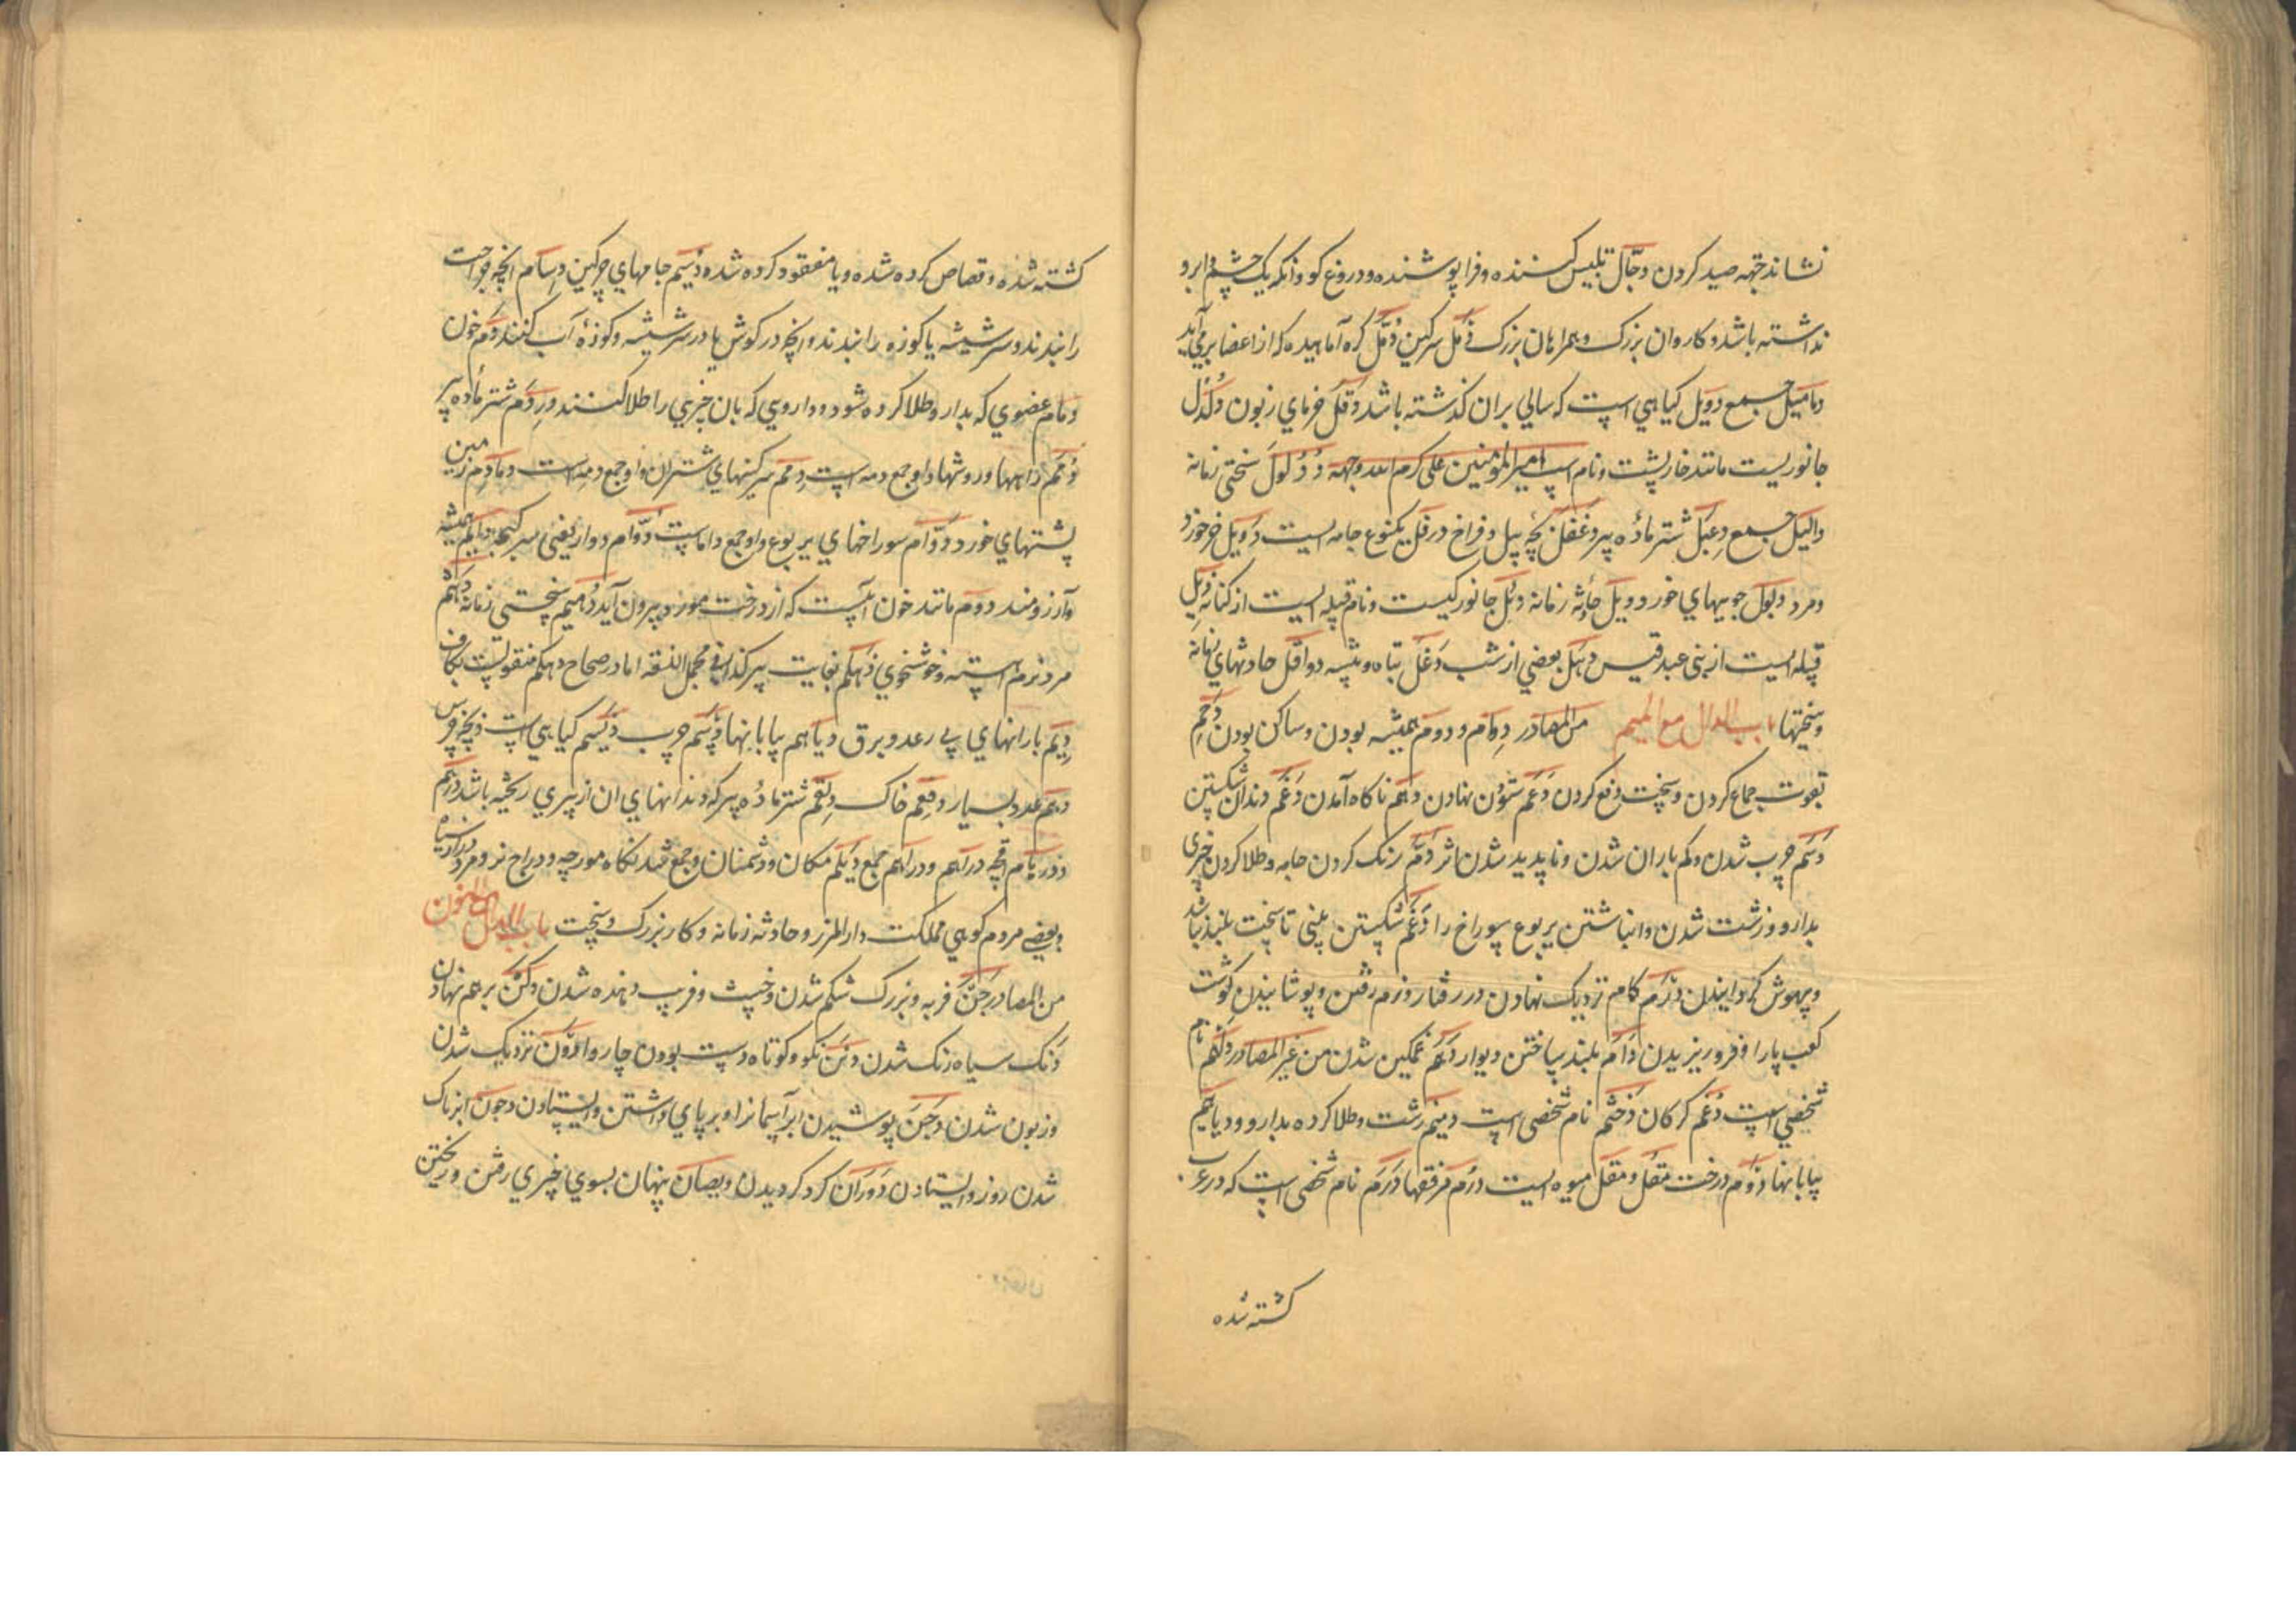 نشاند جهه صید کردن دجّال تلبیس کننده و فرا پوشنده و دروغ کو وانکه یک چشم و ابرو
نداشته باشد و کاروان بزرک و همراهان بزرک دمل سرکین دُمَّل کره آماهیده که از اعضا برمی آید
دمامیل جمع دویل کیاهی است که سالی بران کذشته باشد دقل خرمای زبون دلدل
جانوریست مانند خارپشت و نام اسپ امیر المؤمنین علی کرم الله وجهه دؤلول سختی زمانه
دالیل جمع دعبل شتر مادّه پیر دغفل بچه پیل و فراخ درقل یکنوع جامه ایست دوبل خر خورد
و مرد دبول جویهای خورد دبیل حادثه زمانه دئل جانورکیست و نام قبیله ایست از کنانه دیل
قبیله ایست از بنی عبد قیس دهل بعضی از شب دغل تباه و بیشه دواقل حادثهای زمانه
و سختیها باب الدال مع المیم من المصادر دوام و دوم همیشه بودن و ساکن بودن دحم
بقوت جماع کردن و سخت دفع کردن دعم ستون نهادن دهم ناکاه آمدن دغم دندان شکستن
دسم چرب شدن و کم باران شدن و ناپدید شدن اثر دمّ رنک کردن جامه و طلا کردن چیزی
بدارو و زشت شدن و انباشتن یربوع سوراخ را دغم شکستن بینی تا سخت بلند نباشد
و بیهوش کردانیدن درم کام نزدیک نهادن در رفتار و نرم رفتن و پوشانیدن کوشت
کعب پا را و فرو ریزیدن دام بلند ساختن دیوار دغم غمکین شدن من غیر المصادر دلهم نام
شخصی است دغم کرکان دخشم نام شخصی است دمیم زشت و طلا کرده بدارو و دیاهیم
بیابانها دوم درخت مقل و مقل میوه ایست درم مرفقها درم نام شخصی است که در عرب
کشته شده
کشته شده و قصاص کرده شده و یا مفقود کرده شده دسیم جامهای چرکین دسام انچه جراحت
را بندند و سر شیشه یا کوزه را بندند و انچه در کوش یا در سر شیشه و کوزهٔ آب کنند دم خون
دمام عضوی که بدارو طلا کرده شود و داروی که بان چیزی را طلا کنند دردم شتر ماده پیر
دمم راهها و روشها واو جمع دمه است دمم سرکینهای شتران واو جمع دمه است دمادم زمین
پشتهای خورد دوّام سوراخهای یربوع واو جمع داما ست دوّام دوار یعنی سر کیجه دایم همیشه
وآرزومند دودم مانند خون آبیست که از درخت مورد بیرون آید دهیم سختی زمانه دهثم
مرد نرم آهسته و خوشخوی دهکم بغایت پیر کذا فی مجمل اللغه اما در صحاح دهکم منقولست بکاف
دیم بارانهای بی رعد و برق دیاهیم بیابانها دسم چرب دیسم کیاهی است و بچه خرس
دهم عدد بسیار دقعم خاک دلقم شتر مادّه پیر که دندانهای ان از پیری ریخته باشد درهم
و درهام اقچه دراهم و دراهیم جمع دیلم مکان و دشمنان و جمع شدنکاه مورچه و دراج نر و مرد دراز و سیاه
و بعضی مردم کوهی مملکت دار المرز و حادثه زمانه و کار بزرک و سخت باب الدال مع النون
من المصادر دحن فربه و بزرک شکم شدن و خبیث و فریب دهنده شدن دکن برهم نهادن
دنک سیاه رنک شدن دنن نکو و کوتاه دست بودن چاروا دون نزدیک شدن
و زبون شدن دجن پوشیدن ابر آسمانرا و بر پای داشتن و ایستادن دجون ابرناک
شدن روز و ایستادن دوران کرد کردیدن دیصان پنهان بسوی چیزی رفتن و ریختن